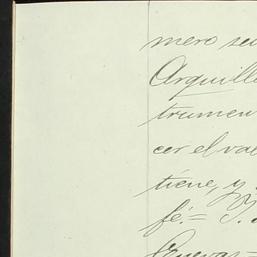 mero se
Arquill
trumen
cer el va
tiene, y
fé.=
Cuevas=